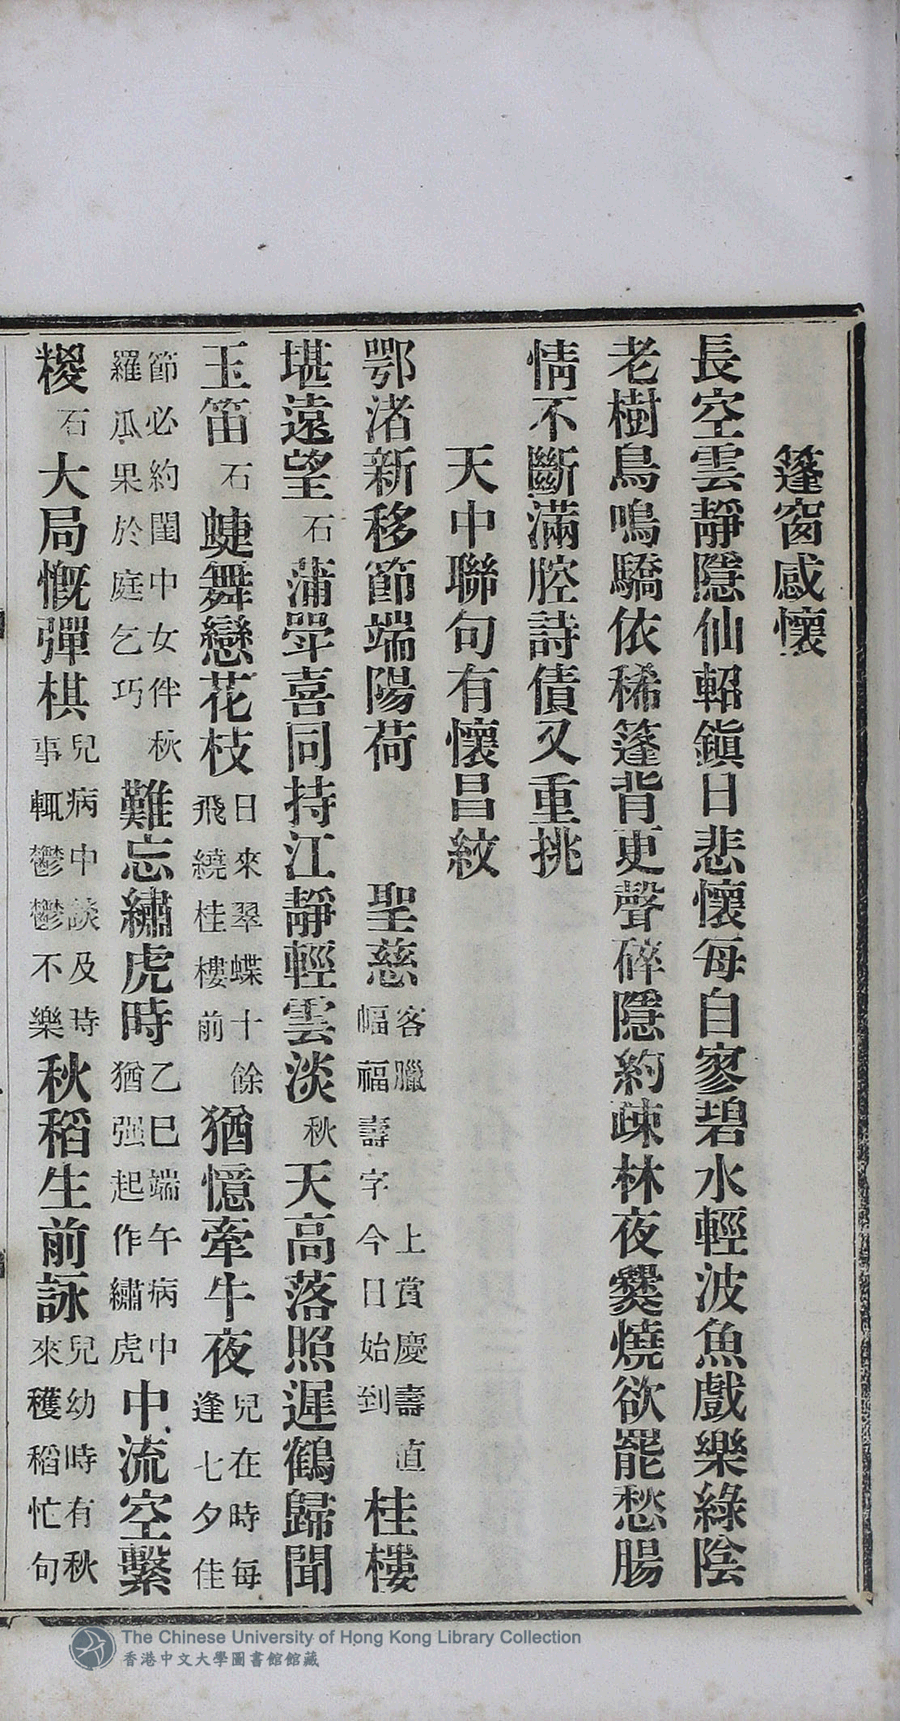 篷窗感懷
長空雲靜隱仙軺鎭日悲懷每自寥碧水輕波魚戲樂綠陰
老樹鳥鳴驕依稀篷背更聲碎隱約疎林夜爨燒欲罷愁腸
情不斷滿腔詩債又重挑
天中聯句有懷昌紋
鄂渚新移節端陽荷　聖慈客臘　上賞慶壽直幅福壽字今日始到桂樓
堪遠望石蒲斝喜同持江靜輕雲淡秋天高落照遲鶴歸聞
玉笛石蜨舞戀花枝日來翠蝶十餘飛繞桂樓前猶憶牽牛夜兒在時每逢七夕佳
節必約閨中女伴羅瓜果於庭乞巧秋難忘繡虎時乙巳端午病中猶强起作繡虎中流空繫
糉石大局慨彈棋兒病中談及時事輒鬱鬱不樂秋稻生前詠兒幼時有秋來穫稻忙句
The Chinese University of Hong Kong Library Collection
香港中文大學圖書館館藏